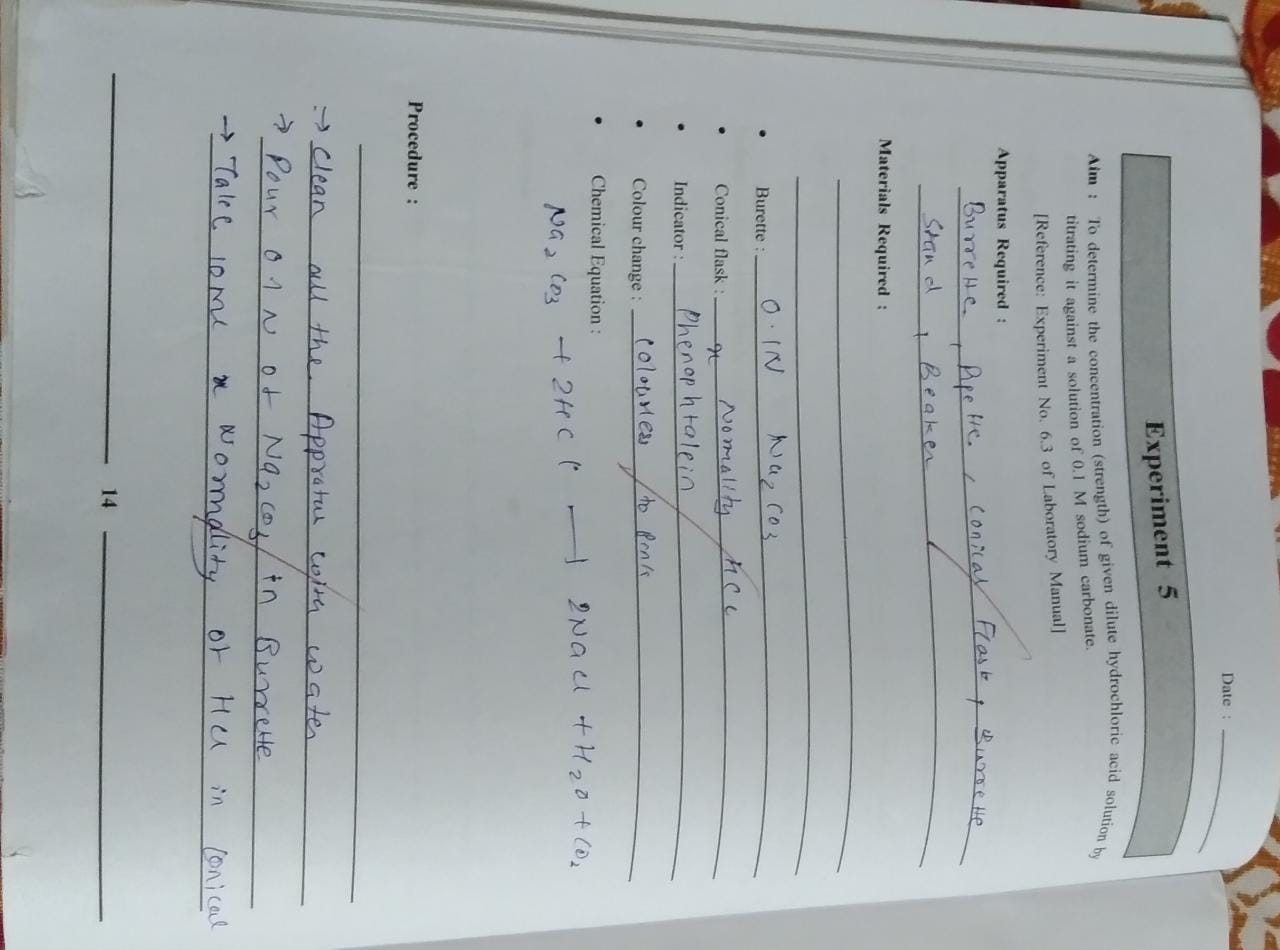 Date :
Experiment 5
Aim : To determine the concentration (strength) of given dilute hydrochloric acid solution by
titrating it against a solution of 0.1 M sodium carbonate.
[Reference: Experiment No. 6.3 of Laboratory Manual]
Apparatus Required :
Burrette, Pipette, Conical Flask, Burrette
Stand, Beaker
Materials Required :
• Burette : 0.1N Na₂CO₃
• Conical flask : x Normality HCl
• Indicator : Phenophtalein
• Colour change : Colourless to Pink
• Chemical Equation :
Na₂CO₃ + 2HCl → 2NaCl + H₂O + CO₂
Procedure :
→ Clean all the Appratus with water
→ Pour 0 1 N of Na₂CO₃ in Burrette
→ Take 10ml x Normality of HCl in Conical
14